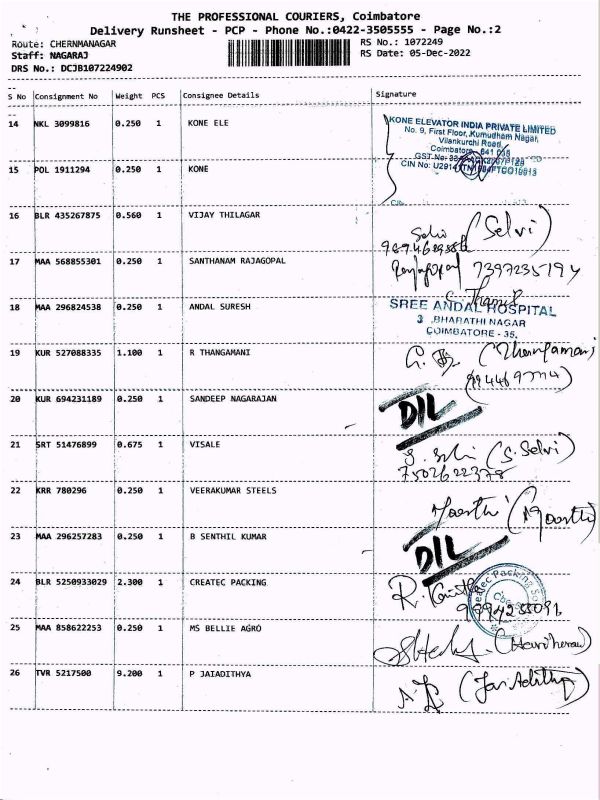 THE PROFESSIONAL COURIERS, Coimbatore
Delivery Runsheet - PCP - Phone No.:0422-3505555 - Page No.:2
Route: CHERNMANAGAR
Staff: NAGARAJ
DRS No.: DCJB107224902
RS No.: 1072249
RS Date: 05-Dec-2022
S No Consignment No Weight PCS Consignee Details Signature
14 NKL 3099816 0.250 1 KONE ELE
KONE ELEVATOR INDIA PRIVATE LIMITED
No. 9, First Floor, Kumudham Nagar,
Vilankurchi Road,
Coimbatore- 641 035
GST No:
CIN No:
15 POL 1911294 0.250 1 KONE
16 BLR 435267875 0.560 1 VIJAY THILAGAR
(Selvi)
17 MAA 568855301 0.250 1 SANTHANAM RAJAGOPAL
Rajagopal 7397235194
18 MAA 296824538 0.250 1 ANDAL SURESH
SREE ANDAL HOSPITAL
3 ,BHARATHI NAGAR
COIMBATORE - 35.
19 KUR 527088335 1.100 1 R THANGAMANI
(Thangamani)
20 KUR 694231189 0.250 1 SANDEEP NAGARAJAN
DIL
21 SRT 51476899 0.675 1 VISALE
(S. Selvi)
7502622378
22 KRR 780296 0.250 1 VEERAKUMAR STEELS
Moorthi (Moorthi)
23 MAA 296257283 0.250 1 B SENTHIL KUMAR
DIL
24 BLR 5250933029 2.300 1 CREATEC PACKING
25 MAA 858622253 0.250 1 MS BELLIE AGRO
26 TVR 5217500 9.200 1 P JAIADITHYA
(Jai Adithya)